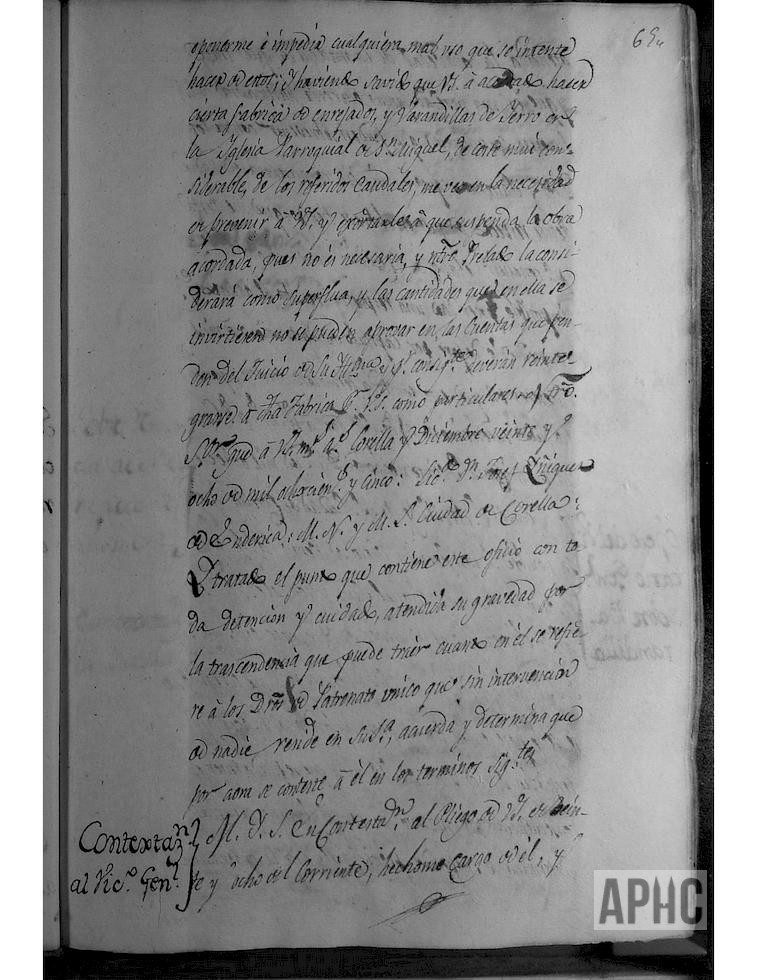 65
oponerme è impedir cualquiera mal uso que se intente
hacer de estos; Y haviendo savido que VS. à acordado hacer
cierta fabrica de enrejados, y Varandillas de Ierro en
la Iglesia Parroquial de Sn. Miguel, de coste mui con-
siderable, de los referidos Caudales, me veo en la necesidad
de prevenir à VS. y exortarle à que suspenda la obra
acordada, pues no es necesaria, y ntro. Prelado la consi-
derará como superflua, y las cantidades que en ella se
invirtieren no se pueden aprovar en las Cuentas que pen-
den del Juicio de Su Illma. y deverán reinte-
grarse à dha Fabrica VS. como particulares
gue. à VS. ms. as. Corella y Diciembre veinte y
ocho de mil ochocientos y cinco: Licdo. Dn. Iñiguez
de Enderica: M. N. y M. L. Ciudad de Corella:
Y tratado el punto que contiene este oficio con to-
da detencion y cuidado, atendida su gravedad por
la trascendencia que puede traer cuanto en él se refie-
re à los Dros de Patronato unico que sin intervencion
de nadie reside en Su Sa., acuerda y determina que
por aora se conteste à él en los terminos sigtes.
Contextan.
al Vico. Genl.
M. Y. S. En Contestan. al Pliego de VS. de vein-
te y ocho del Corriente, hechome cargo de él, y
APHC